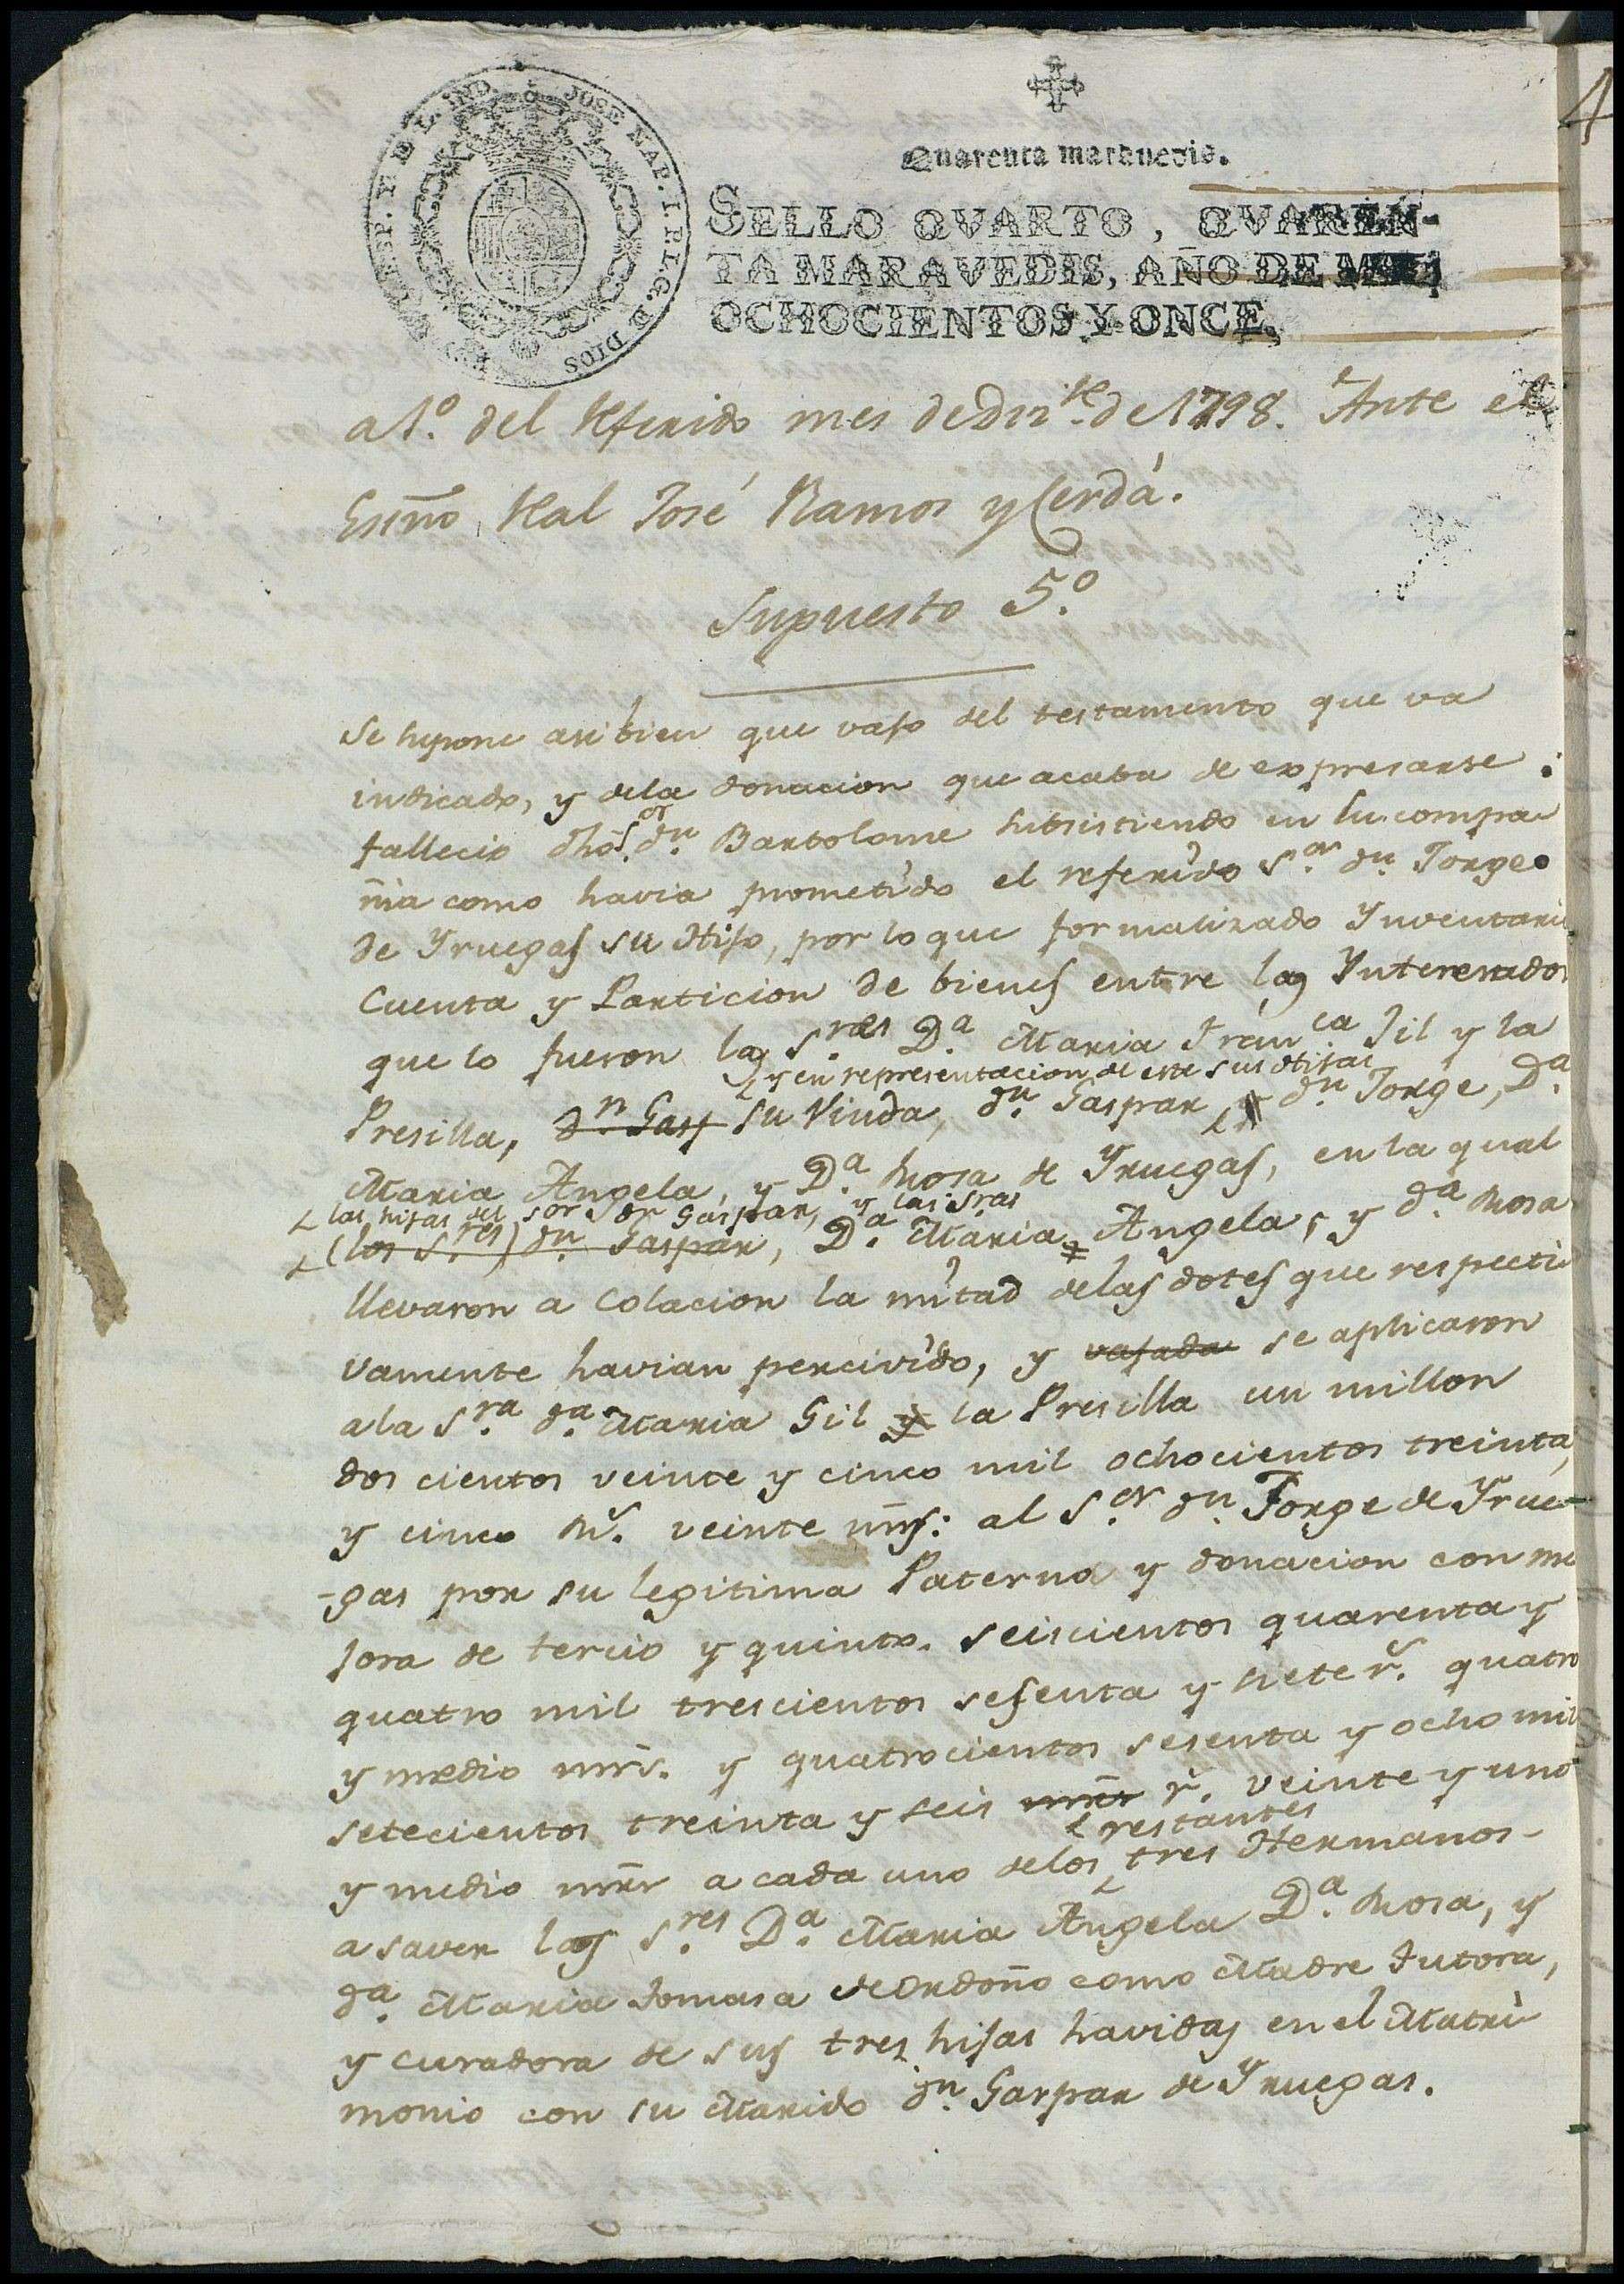 4
JOSE NAP. I. P. L. G. D DIOS
ESP. Y D L. IND.
Quarenta maravedis.
SELLO QVARTO, QVAREN-
TA MARAVEDIS, AÑO DE MIL
OCHOCIENTOS Y ONCE.
a 1.º del Referido mes de Diz.re de 1798. Ante el
Essno Real José Ramos y Cerdá.
Supuesto 5.º
Se supone asi bien que vajo del testamento que va
indicado, y dela donacion que acaba de expresarse
fallecio dho S.or dn. Bartolome subsistiendo en su compa
ñia como havia prometido el referido S.or dn. Jorge
de Yruegas su Hijo, por lo que formalizado Ynventario
Cuenta y Particion de bienes entre los Ynteresados
que lo fueron los S.res D.a Maria Fran.ca Gil y la
y en representacion de este sus Hijas
Presilla, d.n Gasp su Viuda, dn. Gaspar, y dn. Jorge, D.a
Maria Angela, y D.a Rosa de Yruegas, en la qual
las hijas del S.or dn Gaspar, y las Sras
(los S.res) dn. Gaspar, D.a Maria Angela, y d.a Rosa
llevaron a Colacion la mitad delas dotes que respecti
vamente havian percivido, y vajada se aplicaron
ala S.ra d.a Maria Gil y la Presilla un millon
dos cientos veinte y cinco mil ochocientos treinta,
y cinco Rs. veinte mrs: al S.or dn. Jorge de Yrue-
-gas por su legitima Paterna y donacion con me
jora de tercio y quinto. seiscientos quarenta y
quatro mil trescientos sesenta y siete rs. quatro
y medio mrs. y quatrocientos sesenta y ocho mil
setecientos treinta y seis mrs rs. veinte y uno
restantes
y medio mrs a cada uno delos tres Hermanos-
a saver los S.res D.a Maria Angela D.a Rosa, y
d.a Maria Tomasa de Ordoño como Madre Tutora,
y curadora de sus tres hijas havidas en el Matri
monio con su Marido dn. Gaspar de Yruegas.